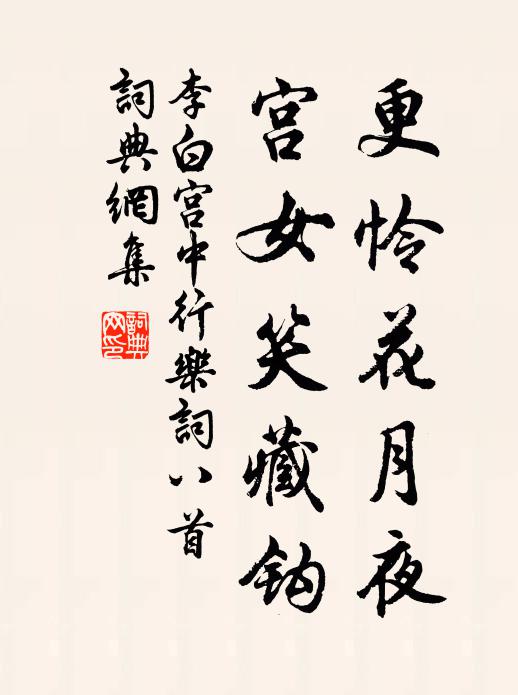 更怜花月夜
宫女笑藏鈎
李白宫中行樂詞八首
詞典網集
詞典網印